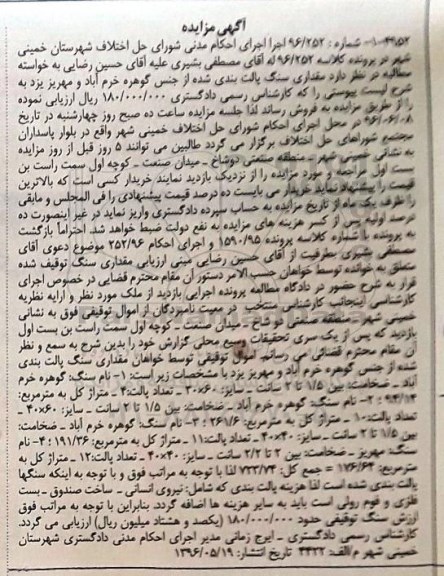 آگهی مزایده
۱۰۰۴۹۵۲ـ شماره : ۹۶/۲۵۲ اجرا اجرای احکام مدنی شورای حل اختلاف شهرستان خمینی
شهر در پرونده کلاسه ۹۶/۲۵۲ له آقای مصطفی بشیری علیه آقای حسین رضایی به خواسته
مطالبه در نظر دارد مقداری سنگ پالت بندی شده از جنس گوهره خرم آباد و مهریز یزد به
شرح لیست پیوستی را که کارشناس رسمی دادگستری ۱۸۰/۰۰۰/۰۰۰ ریال ارزیابی نموده
را از طریق مزایده به فروش رساند لذا جلسه مزایده ساعت ده صبح روز چهارشنبه در تاریخ
۹۶/۰۶/۰۸ در محل اجرای احکام شورای حل اختلاف خمینی شهر واقع در بلوار پاسداران
مجتمع شوراهای حل اختلاف برگزار می گردد طالبین می توانند ۵ روز قبل از روز مزایده
به نشانی خمینی شهر ـ منطقه صنعتی دوشاخ ـ میدان صنعت ـ کوچه اول سمت راست بن
بست اول مراجعه و مورد مزایده را از نزدیک بازدید نمایند خریدار کسی است که بالاترین
قیمت را پیشنهاد نماید خریدار می بایست ده درصد قیمت پیشنهادی را فی المجلس و مابقی
را ظرف یک ماه از تاریخ مزایده به حساب سپرده دادگستری واریز نماید در غیر اینصورت ده
درصد اولیه پس از کسر هزینه های مزایده به نفع دولت ضبط خواهد شد. احتراماً بازگشت
به پرونده با شماره کلاسه پرونده ۱۵۹۰/۹۵ و اجرای احکام ۲۵۲/۹۶ موضوع دعوی آقای
مصطفی بشیری بطرفیت از آقای حسین رضایی مبنی ارزیابی مقداری سنگ توقیف شده
متعلق به خوانده توسط خواهان حسب الامر دستور آن مقام محترم قضایی در خصوص اجرای
قرار به شرح حضور در دادگاه مطالعه پرونده اجرایی بازدید از ملک مورد نظر و ارایه نظریه
کارشناسی اینجانب کارشناس منتخب در معیت نامبردگان از اموال توقیفی فوق به نشانی
خمینی شهر ـ منطقه صنعتی دو شاخ ـ میدان صنعت ـ کوچه اول سمت راست بن بست اول
بازدید که پس از یک سری تحقیقات وسیع محلی گزارش خود را بدین شرح به سمع و نظر
آن مقام محترم قضائی می رسانم. اموال توقیفی توسط خواهان مقداری سنگ پالت بندی
شده از جنس گوهره خرم آباد و مهریز یزد با مشخصات زیر است: ۱- نام سنگ: گوهره خرم
آباد ـ ضخامت: بین ۱/۵ تا ۲ سانت ـ سایز: ۶۰×۳۰ ـ تعداد پالت:۴ ـ متراژ کل به مترمربع:
۹۴/۱۴ ؛ ۲- نام سنگ: گوهره خرم آباد ـ ضخامت: بین ۱/۵ تا ۲ سانت ـ سایز: ۶۰×۴۰ ـ
تعداد پالت:۱۰ ـ متراژ کل به مترمربع: ۲۶۱/۶ ؛ ۳- نام سنگ: گوهره خرم آباد ـ ضخامت:
بین ۱/۵ تا ۲ سانت ـ سایز: ۴۰×۴۰ ـ تعداد پالت:۱۱ ـ متراژ کل به مترمربع: ۱۹۱/۳۶ ؛ ۴- نام
سنگ: مهریز ـ ضخامت: بین ۲ تا ۲/۲ سانت ـ سایز: ۴۰×۴۰ ـ تعداد پالت:۱۲ ـ متراژ کل به
مترمربع: ۱۷۶/۶۴ = جمع کل: ۷۲۳/۷۴ لذا با توجه به مراتب فوق و با توجه به اینکه سنگها
پالت بندی شده است لذا هزینه پالت بندی که شامل: نیروی انسانی ـ ساخت صندوق ـ بست
فلزی و فوم رولی است باید به سایر هزینه ها اضافه گردد. بنابراین با توجه به مراتب فوق
ارزش سنگ توقیفی حدود ۱۸۰/۰۰۰/۰۰۰ (یکصد و هشتاد میلیون ریال) ارزیابی می گردد.
کارشناس رسمی دادگستری ـ ایرج زمانی مدیر اجرای احکام مدنی دادگستری شهرستان
خمینی شهر م/الف: ۴۴۲۲ تاریخ انتشار: ۱۳۹۶/۰۵/۱۹